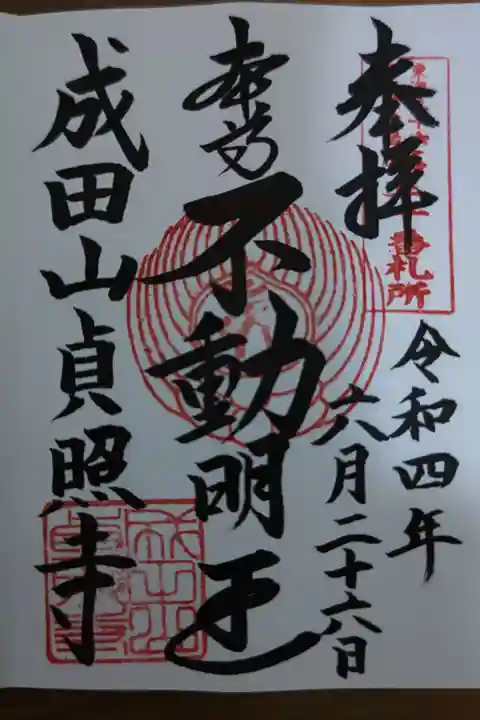 奉拝
令和四年
六月二十六日
本尊
不動明王
成田山貞照寺
番札所